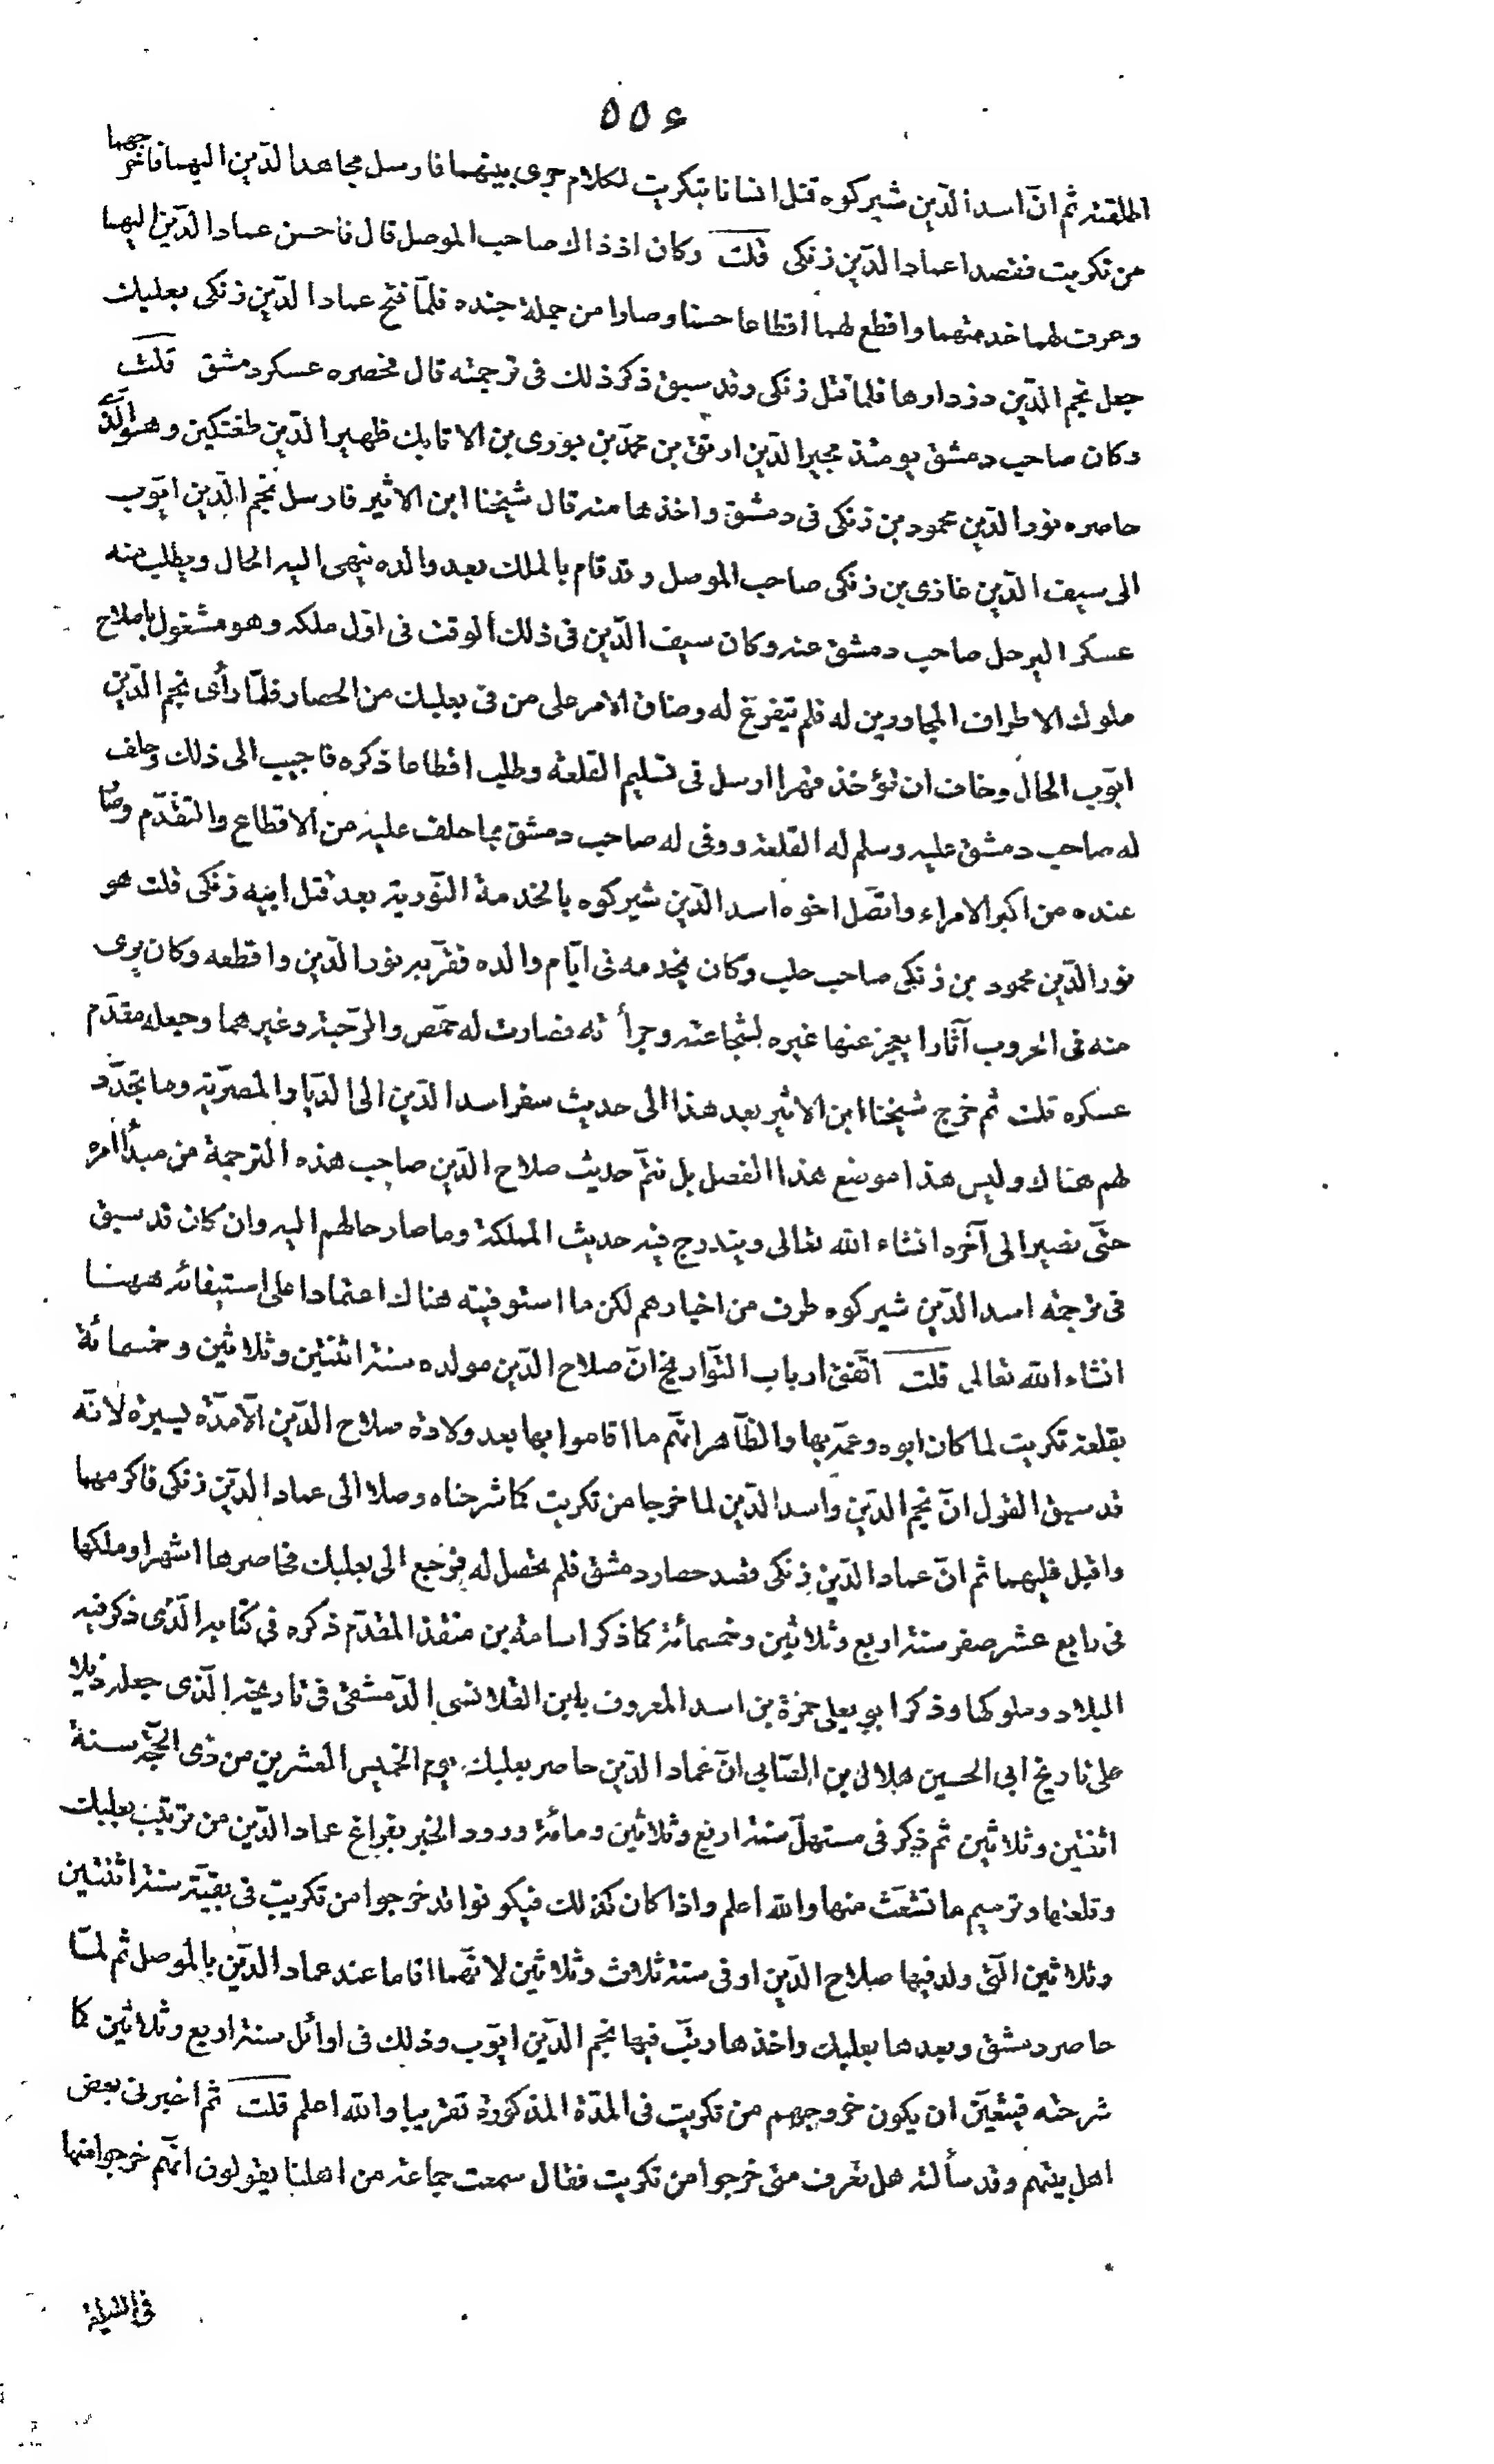 ٥٥٤
اطلقته ثم انّ اسد الدّين شيركوه قتل انسانا بتكريت لكلام جرى بينهما فارسل مجاهد الدّين اليهما فاخرجهما
من تكريت فقصدا عماد الدّين زنكى قلت وكان اذ ذاك صاحب الموصل قال فاحسن عماد الدّين اليهما
وعرف لهما خدمتهما واقطع لهما اقطاعا حسنا وصارا من جملة جنده فلمّا فتح عماد الدّين زنكى بعلبك
جعل نجم الدّين دزدارها فلمّا قتل زنكى وقد سبق ذكر ذلك فى ترجمته قال فحصره عسكر دمشق قلت
وكان صاحب دمشق يومئذ مجير الدّين ارتق بن محمّد بن بورى بن الاتابك ظهير الدّين طغتكين وهو الّذى
حاصره نور الدّين محمود بن زنكى فى دمشق واخذها منه قال شيخنا ابن الاثير فارسل نجم الدّين ايّوب
الى سيف الدّين غازى بن زنكى صاحب الموصل وقد قام بالملك بعد والده ينهى اليه الحال ويطلب منه
عسكرا ليرحل صاحب دمشق عنه وكان سيف الدّين فى ذلك الوقت فى اوّل ملكه وهو مشغول باصلاح
ملوك الاطراف المجاورين له فلم يتفرغ له وضاق الامر على من فى بعلبك من الحصار فلمّا رأى نجم الدّين
ايّوب الحال وخاف ان تؤخذ قهرا ارسل فى تسليم القلعة وطلب اقطاعا ذكره فاجيب الى ذلك وحلف
له صاحب دمشق عليه وسلم له القلعة ووفى له صاحب دمشق بما حلف عليه من الاقطاع والتقدّم وصار
عنده من اكبر الامراء واتّصل اخوه اسد الدّين شيركوه بالخدمة النّورية بعد قتل ابيه زنكى قلت هو
نور الدّين محمود بن زنكى صاحب حلب وكان يخدمه فى ايّام والده فقرّبه نور الدّين واقطعه وكان يرى
منه فى الحروب آثارا يعجز عنها غيره لشجاعته وجرأته فصارت له حمص والرّحبة وغيرهما وجعله مقدّم
عسكره قلت ثم خرج شيخنا ابن الاثير بعد هذا الى حديث سفر اسد الدّين الى الدّيار المصريّة وما تجدّد
لهم هناك وليس هذا موضع هذا الفصل بل نتمّ حديث صلاح الدّين صاحب هذه الترجمة من مبدأ امره
حتّى نصير الى آخره انشاء الله تعالى ويندرج فيه حديث المملكة وما صار حالهم اليه وان كان قد سبق
فى ترجمة اسد الدّين شيركوه طرف من اخبارهم لكن ما استوفيته هناك اعتمادا على استيفائه ههنا
انشاء الله تعالى قلت اتّفق ارباب التّواريخ انّ صلاح الدّين مولده سنة اثنتين وثلاثين وخمسمائة
بقلعة تكريت لما كان ابوه وعمّه بها والظّاهر انّهم ما اقاموا بها بعد ولادة صلاح الدّين الّا مدّة يسيرة لانّه
قد سبق القول انّ نجم الدّين واسد الدّين لما خرجا من تكريت كما شرحناه وصلا الى عماد الدّين زنكى فاكرمهما
واقبل عليهما ثم انّ عماد الدّين زنكى قصد حصار دمشق فلم يحصل له فرجع الى بعلبك فحاصرها اشهرا وملكها
فى رابع عشر صفر سنة اربع وثلاثين وخمسمائة كما ذكر اسامة بن منقذ المقدّم ذكره فى كتابه الّذى ذكر فيه
البلاد وملوكها وذكر ابو يعلى حمزة بن اسد المعروف بابن القلانسى الدّمشقى فى تاريخه الّذى جعله ذيلا
على تاريخ ابى الحسين هلال بن الصّابى انّ عماد الدّين حاصر بعلبك يوم الخميس العشرين من ذى الحجّة سنة
اثنتين وثلاثين ثم ذكر فى مستهلّ سنة اربع وثلاثين ومائة ورود الخبر بفراغ عماد الدّين من ترتيب بعلبك
وقلعتها وترميم ما تشعّث منها والله اعلم واذا كان كذلك فيكونوا قد خرجوا من تكريت فى بقيّة سنة اثنتين
وثلاثين الّتى ولد فيها صلاح الدّين او فى سنة ثلاث وثلاثين لانّهما اقاما عند عماد الدّين بالموصل ثم لمّا
حاصر دمشق وبعدها بعلبك واخذها رتّب فيها نجم الدّين ايّوب وذلك فى اوائل سنة اربع وثلاثين كما
شرحته فيتعيّن ان يكون خروجهم من تكريت فى المدّة المذكورة تقريبا والله اعلم قلت ثم اخبرنى بعض
اهل بيتهم وقد سألته هل تعرف متى خرجوا من تكريت فقال سمعت جماعة من اهلنا يقولون انّهم خرجوا منها
فى الليلة